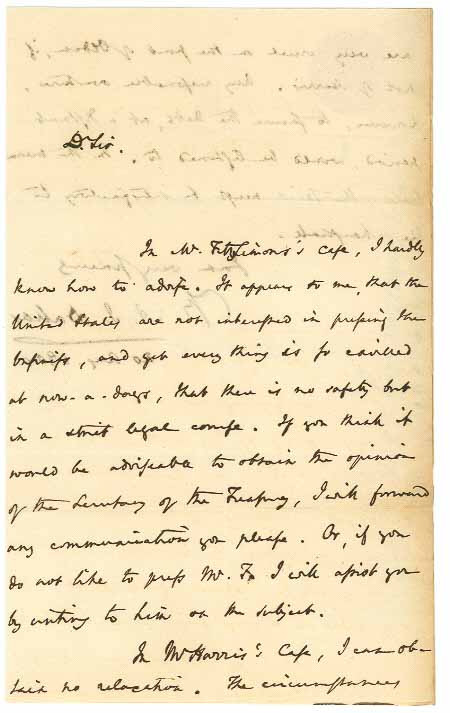 Dr Sir.
In Mr. FitzSimons's case, I hardly
know how to advise. It appears to me, that the
United States are not interested in pressing the
business, and yet every thing is so cavilled
at now-a-days, that there is no safety but
in a strict legal course. If you think it
would be adviseable to obtain the opinion
of the Secretary of the Treasury, I will forward
any communication you please. Or, if you
do not like to press Mr. Fs I will assist you
by writing to him on the subject.
In Mr Harris's Case, I can ob-
tain no relaxation. The circumstances